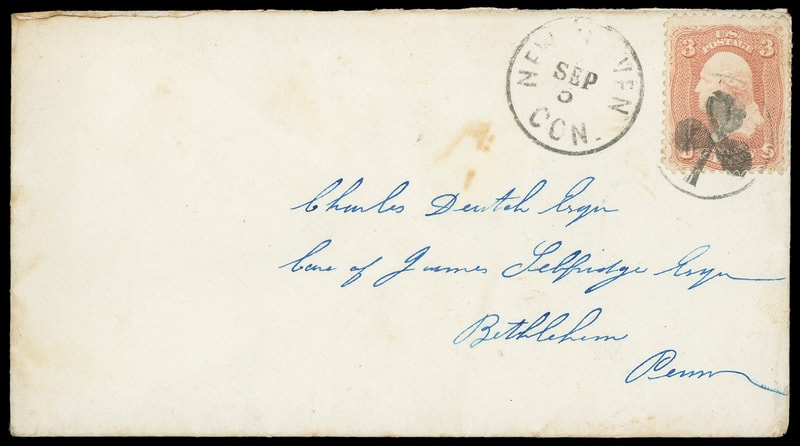 NEW HAVEN
SEP
CON.
3 U.S. 3
POSTAGE
Charles Deutch Esqr
Care of James Selfridge Esqr
Bethlehem
Penn